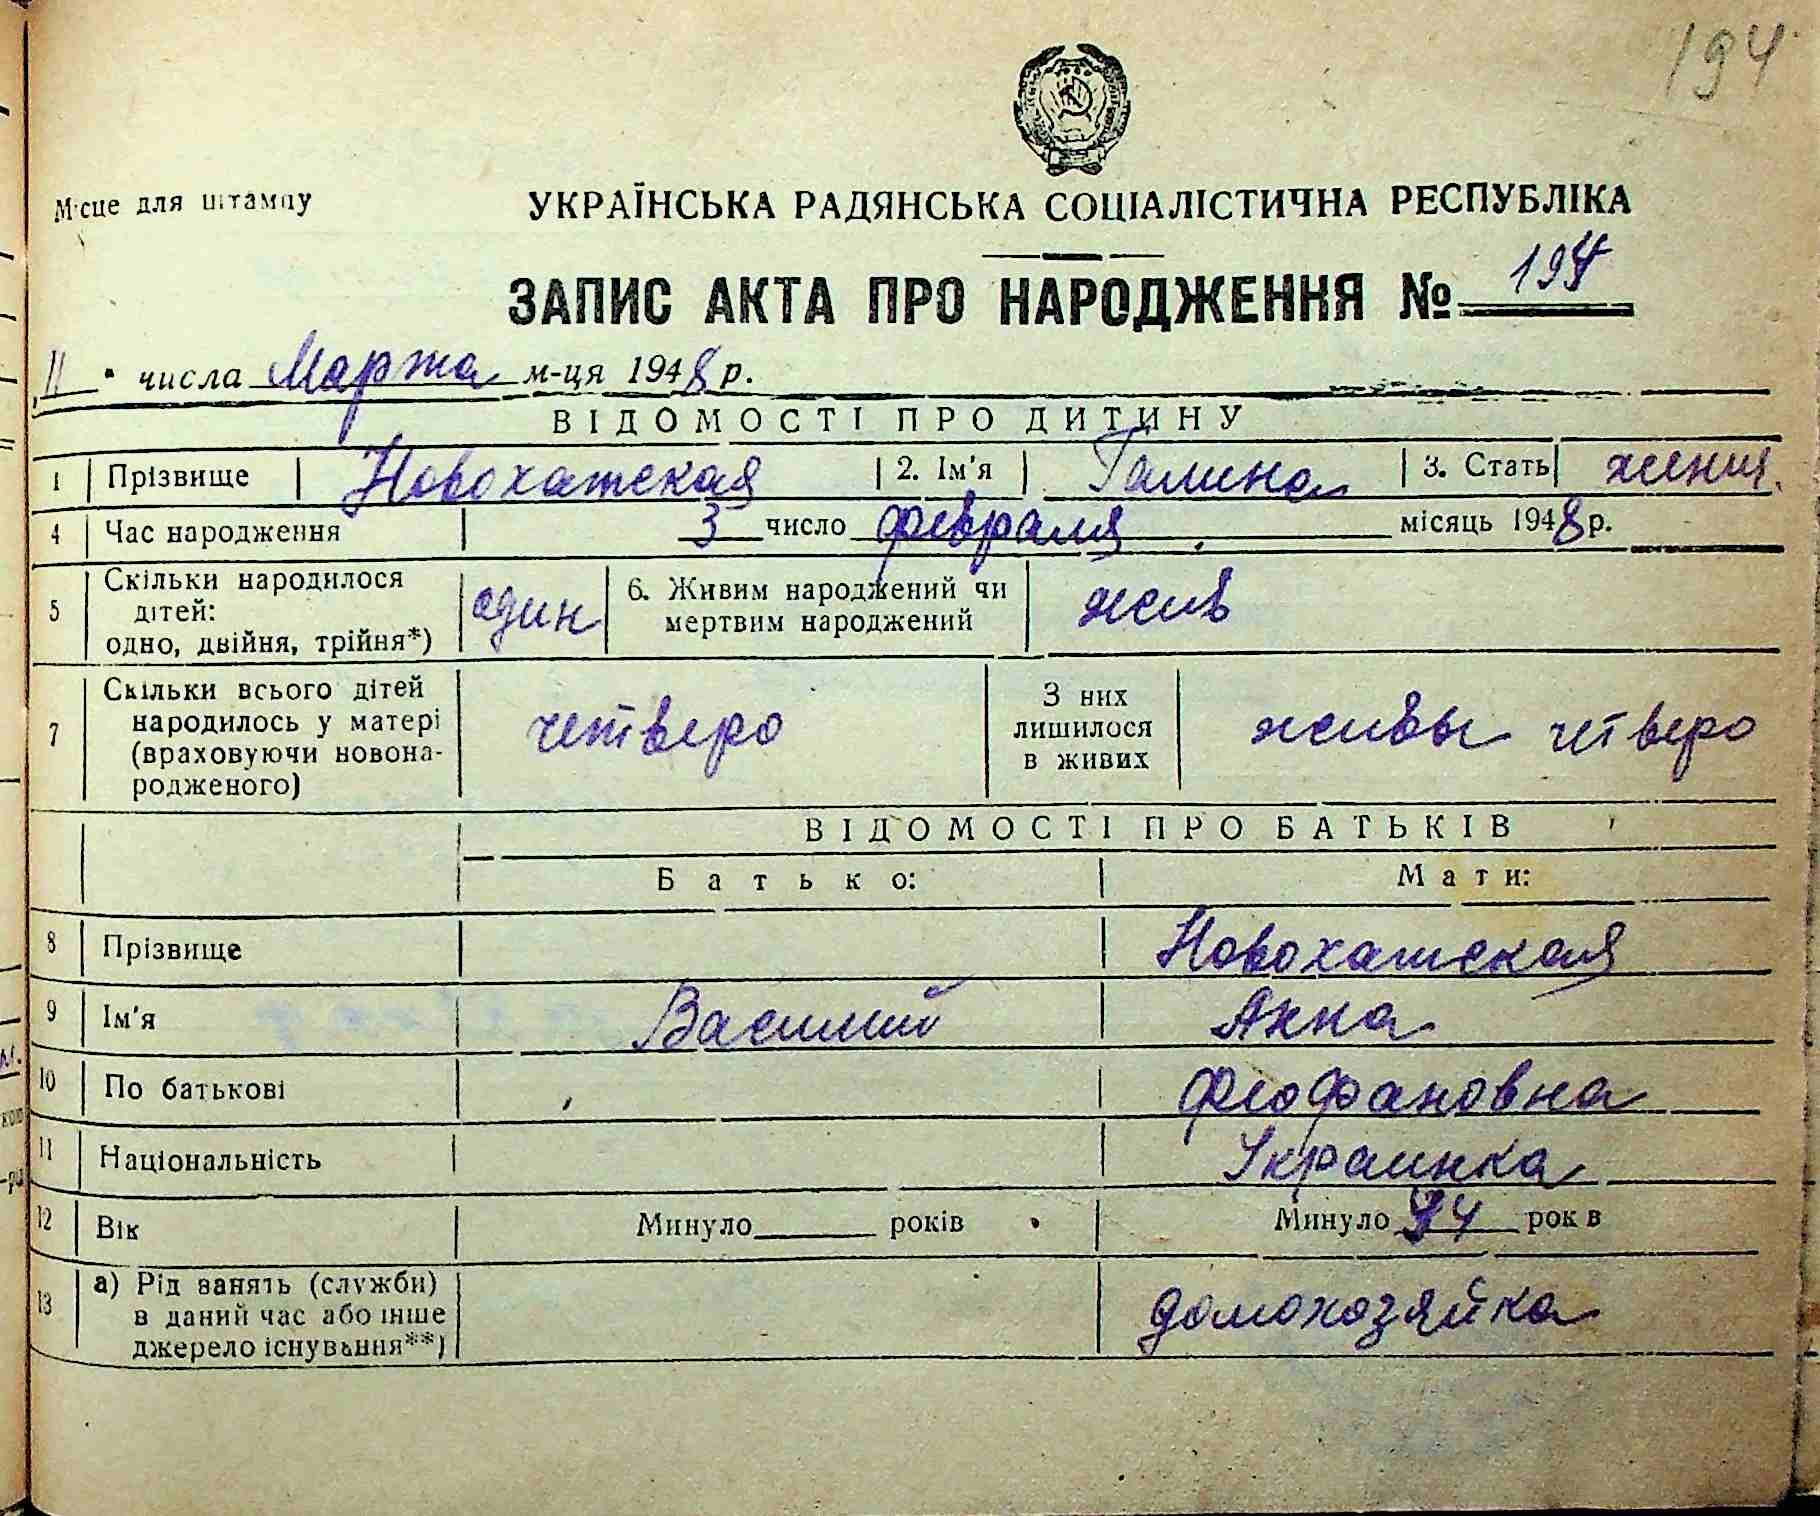 194
Місце для штампу
УКРАЇНСЬКА РАДЯНСЬКА СОЦІАЛІСТИЧНА РЕСПУБЛІКА
ЗАПИС АКТА ПРО НАРОДЖЕННЯ № 194
„11" числа Марта м-ця 1948 р.
ВІДОМОСТІ ПРО ДИТИНУ
1 Прізвище Новохатская 2. Ім'я Галина 3. Стать
4 Час народження 3 число февраля місяць 1948 р.
5 Скільки народилося дітей: одно, двійня, трійня*) один 6. Живим народжений чи мертвим народжений жив
7 Скільки всього дітей народилось у матері (враховуючи новонародженого) четверо З них лишилося в живих живы четверо
ВІДОМОСТІ ПРО БАТЬКІВ
Батько: Мати:
8 Прізвище Новохатская
9 Ім'я Василий Анна
10 По батькові Феофановна
11 Національність Украинка
12 Вік Минуло років Минуло років
13 а) Рід занять (служби) в даний час або інше джерело існування**) домохозяйка